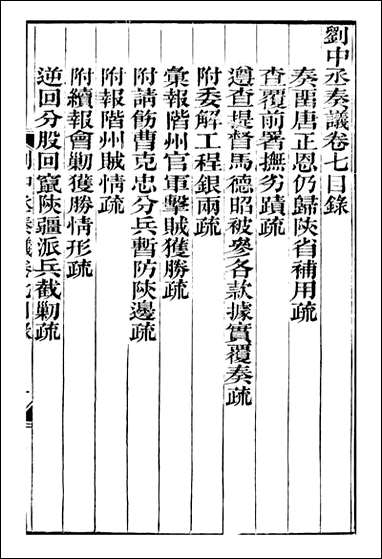 劉中丞奏議卷七目錄
奏留唐正恩仍歸陝省補用疏
查覆前署撫劣蹟疏
遵查提督馬德昭被參各款據實覆奏疏
附委解工程銀兩疏
彙報階州官軍擊賊獲勝疏
附請飭曹克忠分兵暫防陝邊疏
附報階州賊情疏
附續報會勦獲勝情形疏
逆回分股回竄陝疆派兵截勦疏